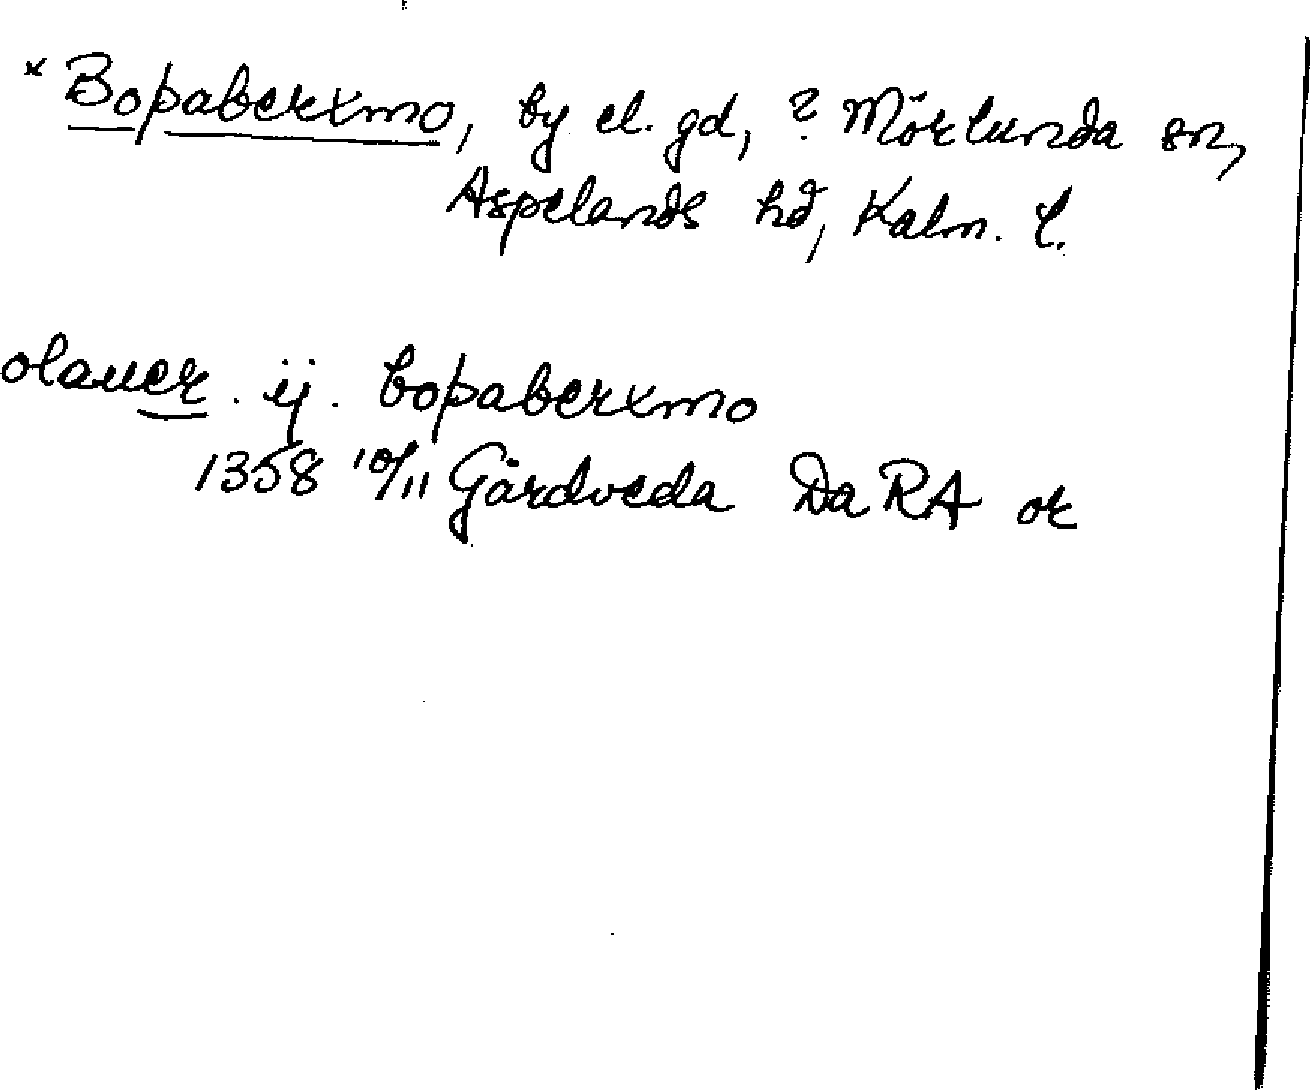 × Boþaberxmo, by el. gd, ? Mörlunda sn,
Aspelands hd, Kalm. l.
olauer . ij . boþaberxmo
1358 10/11 Gårdveda Da RA or